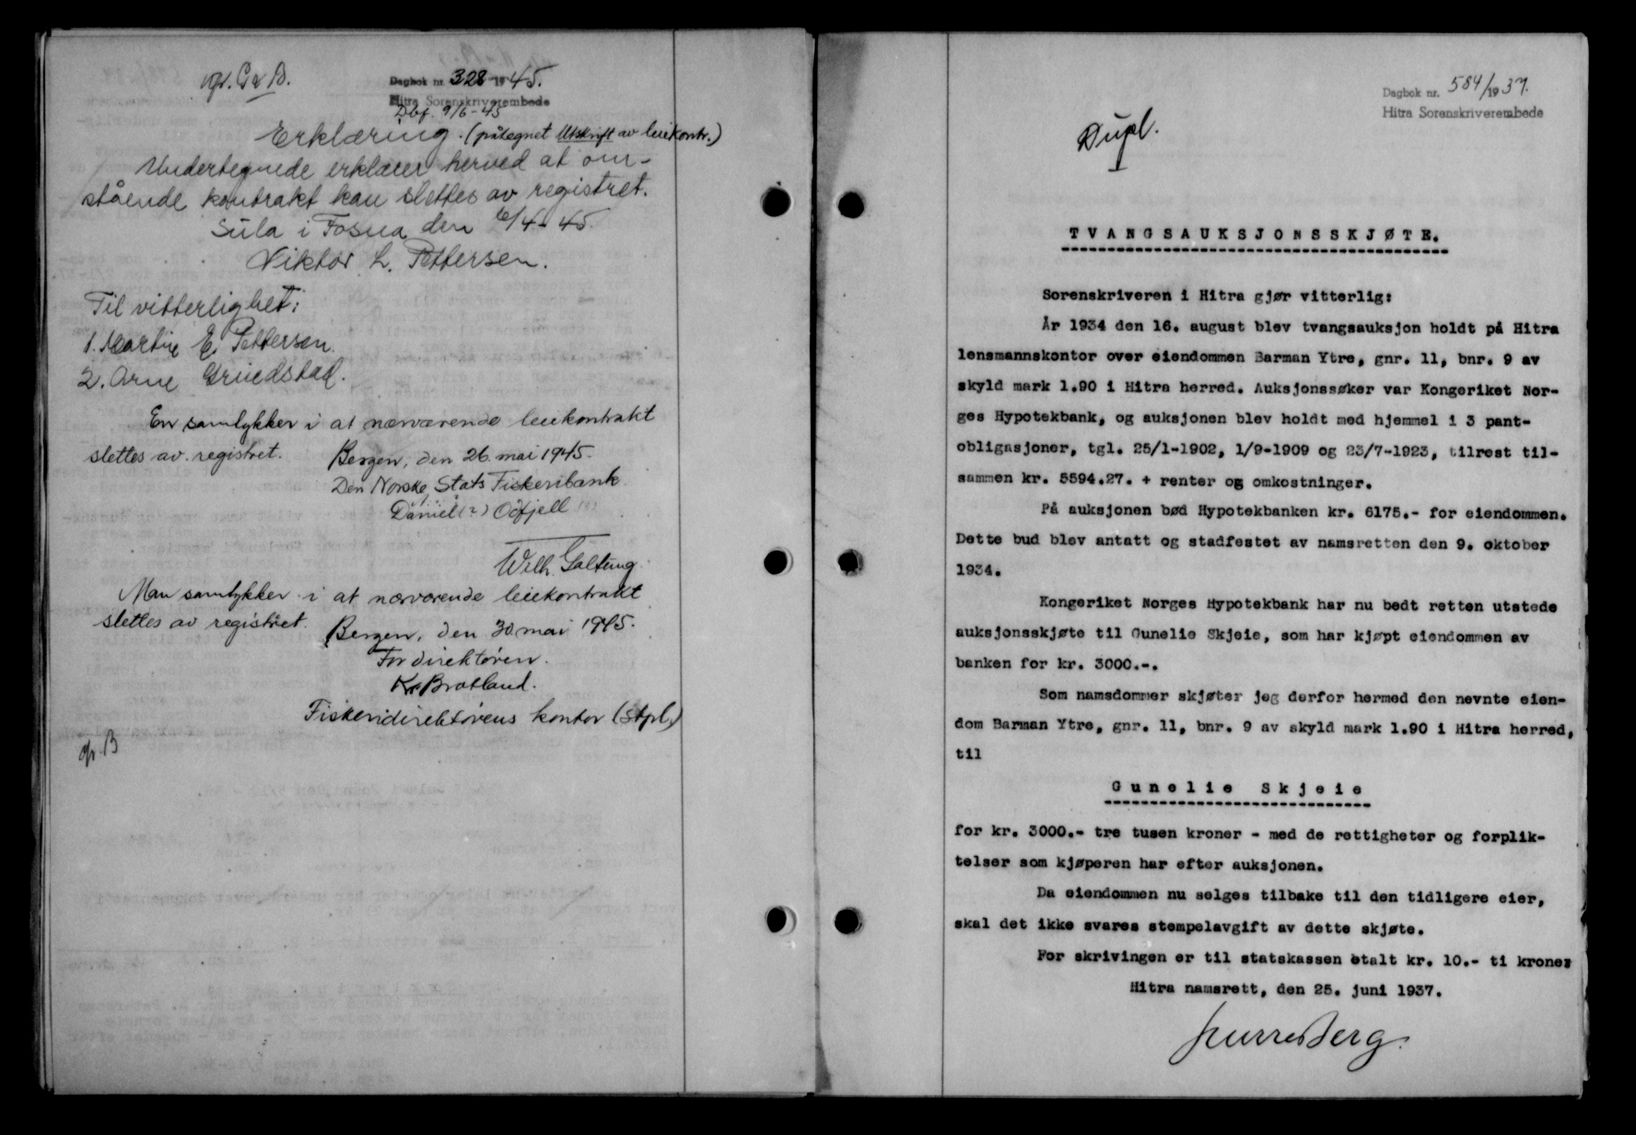 gr. G & B.
Dagbok nr. 328 1945.
Hitra Sorenskriverembede
Dbf. 9/6-45
Erklæring. (påtegnet Utskrift av leiekontr.)
Undertegnede erklærer herved at om-
stående kontrakt kan slettes av registret.
Sula i Fosna den 6/4-45.
Viktor L. Pettersen.
Til vitterlighet:
1. Martin E. Pettersen.
2. Arne Gruedstad.
En samtykker i at nærværende leiekontrakt
slettes av registret. Bergen, den 26. mai 1945.
Den Norske Stats Fiskeribank
Daniel (?) Odfjell
Wilh. Galtung
Man samtykker i at nærværende leiekontrakt
slettes av registret. Bergen, den 30. mai 1945.
For direktøren.
Kr. Bratland.
Fiskeridirektørens kontor (Stpl.)
gr. B
Dagbok nr. 584/1937.
Hitra Sorenskriverembede
Dupl.
TVANGSAUKSJONSSKJØTE.
Sorenskriveren i Hitra gjør vitterlig:
År 1934 den 16. august blev tvangsauksjon holdt på Hitra
lensmannskontor over eiendommen Barman Ytre, gnr. 11, bnr. 9 av
skyld mark 1.90 i Hitra herred. Auksjonssøker var Kongeriket Nor-
ges Hypotekbank, og auksjonen blev holdt med hjemmel i 3 pant-
obligasjoner, tgl. 25/1-1902, 1/9-1909 og 23/7-1923, tilrest til-
sammen kr. 5594.27. + renter og omkostninger.
På auksjonen bød Hypotekbanken kr. 6175.- for eiendommen.
Dette bud blev antatt og stadfestet av namsretten den 9. oktober
1934.
Kongeriket Norges Hypotekbank har nu bedt retten utstede
auksjonsskjøte til Gunelie Skjeie, som har kjøpt eiendommen av
banken for kr. 3000.-.
Som namsdommer skjøter jeg derfor hermed den nevnte eien-
dom Barman Ytre, gnr. 11, bnr. 9 av skyld mark 1.90 i Hitra herred,
til
Gunelie Skjeie
for kr. 3000.- tre tusen kroner - med de rettigheter og forplik-
telser som kjøperen har efter auksjonen.
Da eiendommen nu selges tilbake til den tidligere eier,
skal det ikke svares stempelavgift av dette skjøte.
For skrivingen er til statskassen btalt kr. 10.- ti kroner
Hitra namsrett, den 25. juni 1937.